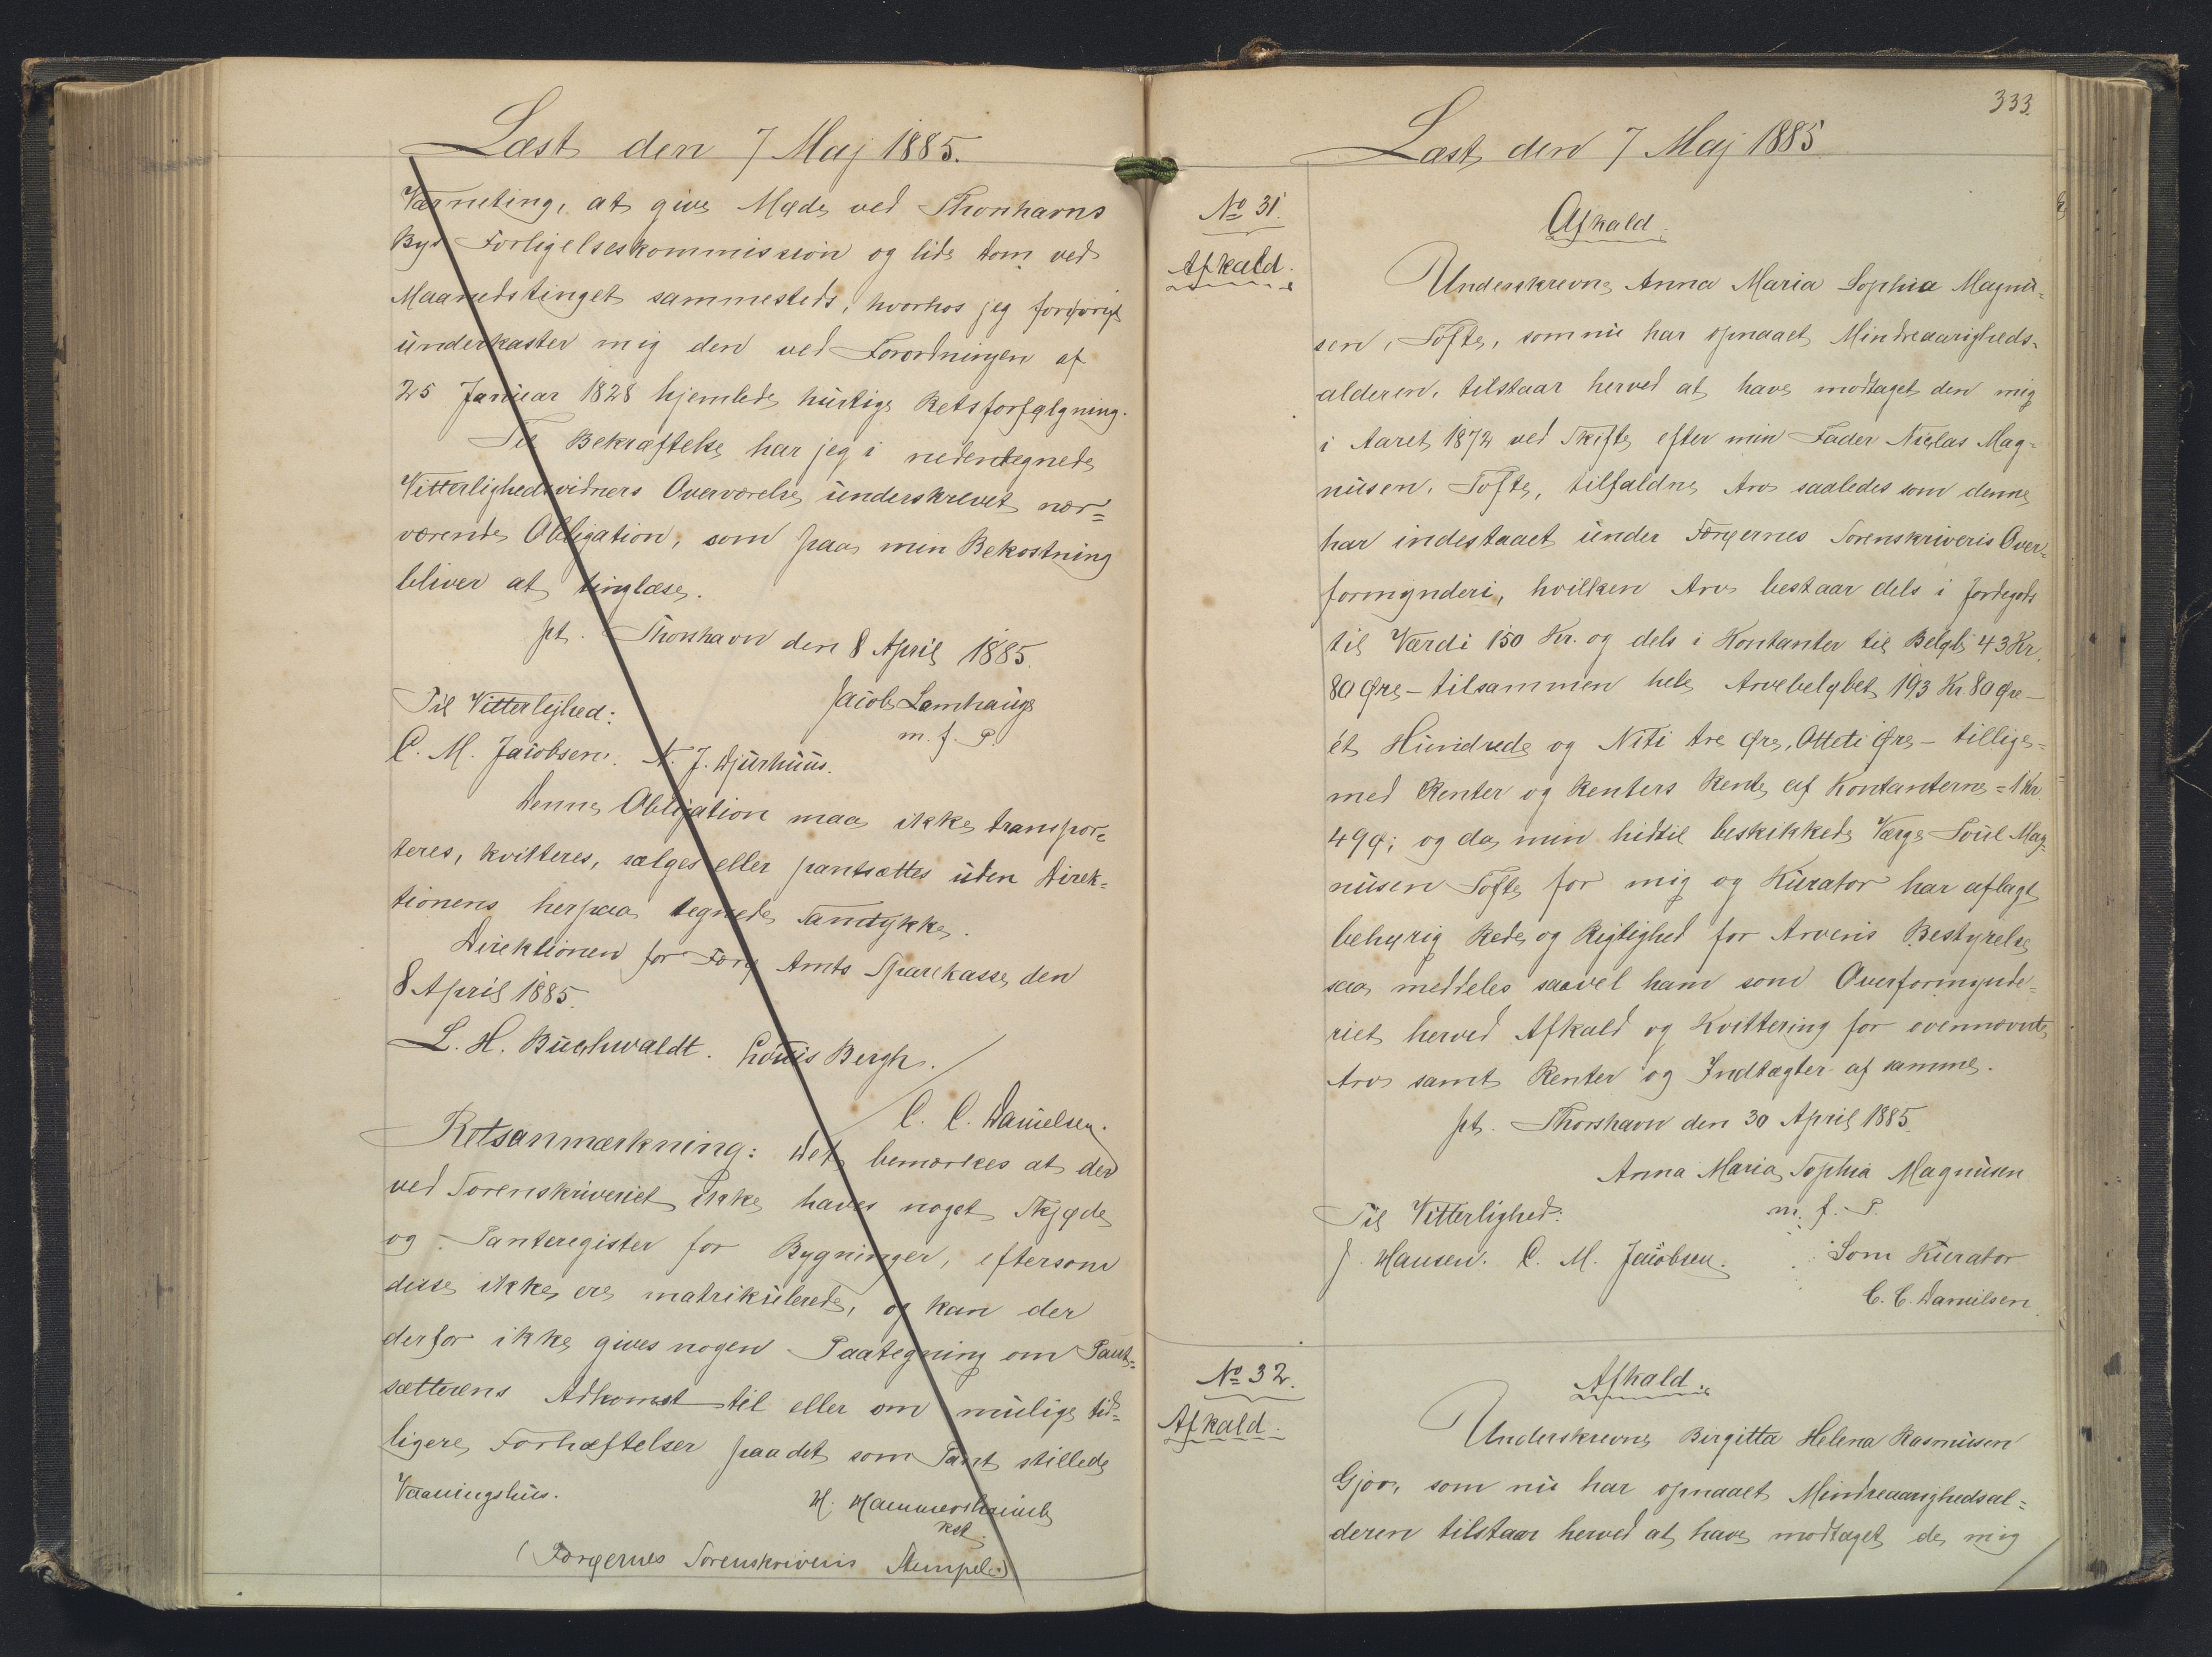 Læst den 7 Maj 1885.
Værneting, at give Møde ved Thorshavns
Byes Forligelseskommission og lide Dom ved
Maanedstinget sammesteds, hvorhos jeg forøvrigt
underkaster mig den ved Forordningen af
25 Januar 1828 hjemlede hurtige Retsforfølgning.
Til Bekræftelse har jeg i nedentegnede
Vitterlighedsvidners Overværelse underskrevet nær=
værende Obligation, som paa min Bekostning
bliver at tinglæse.
pt. Thorshavn den 8 April 1885.
Til Vitterlighed: Jacob Lamhauge
m. f. P.
C. M. Jacobsen. N. J. Djurhuus.
Denne Obligation maa ikke transpor=
teres, kvitteres, sælges eller pantsættes uden Direk=
tionens herpaa tegnede Samtykke.
Direktionen for Færø Amts Sparekasse, den
8 April 1885.
L. H. Buchwaldt. Louis Bergh.
C. C. Danielsen.
Retsanmærkning: Det bemærkes at der
ved Sorenskriveriet ikke haves noget Skjøde
og Panteregister for Bygninger, eftersom
disse ikke ere matrikulerede, og kan der
derfor ikke gives nogen Paategning om Pant=
sætterens Adkomst til eller om mulige tid=
ligere Forhæftelser paa det som Pant stillede
Vaaningshus.
H. Hammershaimb
kst.
(Færøernes Sorenskriveris Stempel.)
333.
Læst den 7 Maj 1885
No 31.
Afkald.
Afkald.
Underskrevne Anna Maria Sophia Magnu=
sen, Tofte, som nu har opnaaet Mindreaarigheds=
alderen, tilstaar herved at have modtaget den mig
i Aaret 1872 ved Skifte efter min Fader Niclas Mag=
nusen, Tofte, tilfaldne Arv saaledes som denne
har indestaaet under Færøernes Sorenskriveris Over=
formynderi, hvilken Arv bestaar dels i Jordegods
til Værdi 150 Kr. og dels i Kontanter til Beløb 43 Kr.
80 Øre - tilsammen hele Arvebeløbet 193 Kr. 80 Øre -
ét Hundrede og Niti tre Øre, Otteti Øre - tillige=
med Renter og Renters Rente af Kontanterne = 1 Kr.
49 Ø; og da min hidtil beskikkede Værge Poul Mag=
nusen Tofte for mig og Kurator har aflagt
behørig Rede og Rigtighed for Arvens Bestyrelse
saa meddeles saavel ham som Overformynde=
riet herved Afkald og Kvittering for ovennævnte
Arv samt Renter og Indtægter af samme.
pt. Thorshavn den 30 April 1885.
Anna Maria Sophia Magnusen
m. f. P.
Til Vitterlighed:
J. Hansen. C. M. Jacobsen. Som Kurator
C. C. Danielsen
No 32.
Afkald.
Afkald.
Underskrevne Birgitta Helena Rasmusen
Gjov, som nu har opnaaet Mindreaarighedsal=
deren tilstaar herved at have modtaget de mig